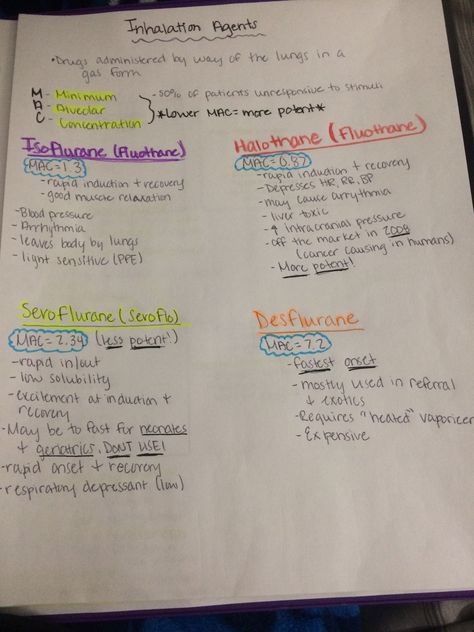 Inhalation Agents
• Drugs administered by way of the lungs in a
gas form
M - Minimum
A - Alveolar
C - Concentration
- 50% of patients unresponsive to stimuli
*Lower MAC = more potent*
Isoflurane (Fluothane)
MAC = 1.3
- rapid induction + recovery
- good muscle relaxation
- Blood pressure
- Arrhythmia
- leaves body by lungs
- light sensitive (PPE)
Halothane (Fluothane)
MAC = 0.87
- rapid induction + recovery
- Depresses HR, RR, BP
- may cause arrythmia
- liver toxic
- ↑ intracranial pressure
- off the market in 2008
(cancer causing in humans)
- More potent!
Sevoflurane (Sevoflo)
MAC = 2.34 (less potent!)
- rapid in/out
- low solubility
- excitement at induction +
recovery
- May be to fast for neonates
+ geriatrics, DONT USE!
- rapid onset + recovery
- respiratory depressant (low)
Desflurane
MAC = 7.2
- fastest onset
- mostly used in referral
+ exotics
- Requires "heated" vaporicer
- Expensive